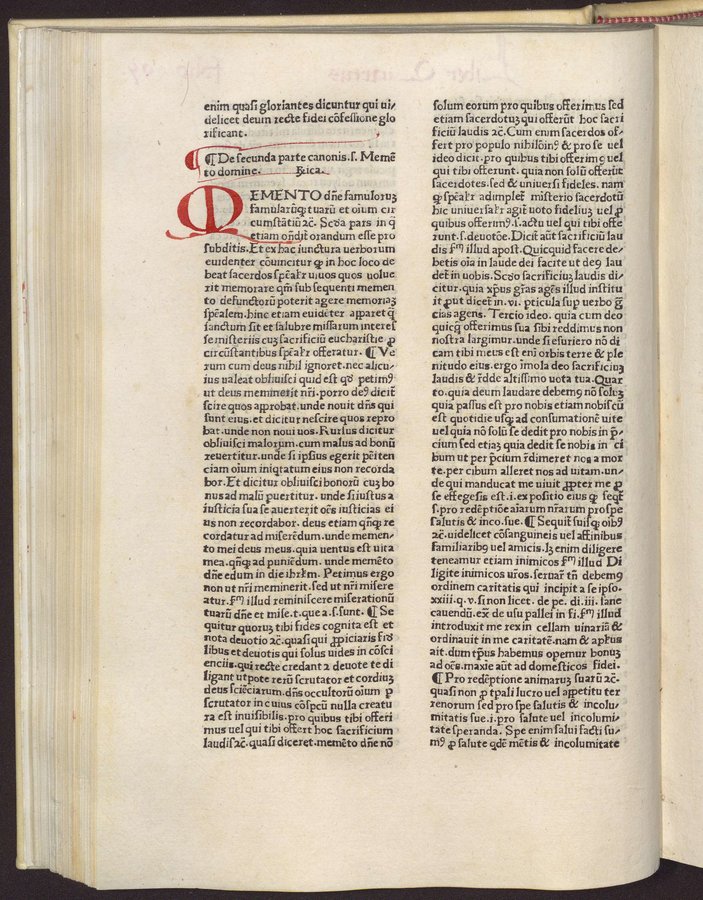 enim quasi gloriantes dicuntur qui ui⸗
delicet deum recte fidei cõfessione glo
rificant.
¶ De secunda parte canonis. s. Memẽ
to domine. Rica.
MEMENTO dñe famuloruꝫ
famularũqꝫ tuarũ et oium cir
cumstãtiũ ⁊c. Scđa pars in q̃
etiam oñdit orandum esse pro
subditis. Et ex hac iunctura uerborum
euidenter cõuincitur ꝙ in hoc loco de
beat sacerdos sp̃eałr uiuos quos uolue
rit memorare qm̃ sub sequenti memen
to defunctorũ poterit agere memoriaꝫ
sp̃ealem. hinc etiam euidẽter apparet q̃
sanctum sit et salubre missarum interes
se misteriis cuꝫ sacrificiũ eucharistie ꝑ
circũstantibus sp̃eałr offeratur. ¶ Ve
rum cum deus nihil ignoret. nec alicu⸗
ius ualeat obliuisci quid est qđ petimꝰ
ut deus meminerit nr̃i. porro deꝰ dicit̃
scire quos approbat. unde nouit dñs qui
sunt eius. et dicitur nescire quos repro
bat. unde non noui uos. Rursus dicitur
obliuisci malorum. cum malus ad bonũ
reuertitur. unde si ipsius egerit pẽiten
ciam oium iniq̃tatum eius non recorda
bor. Et dicitur obliuisci bonorũ cuꝫ bo
nus ad malũ ꝑuertitur. unde si iustus a
iusticia sua se auerterit oẽs iusticias ei
us non recordabor. deus etiam qñqꝫ re
cordatur ad miserẽdum. unde memen⸗
to mei deus meus. quia uentus est uita
mea. qñqꝫ ad puniẽdum. unde memẽto
dñe edom in die ihrłm. Petimus ergo
non ut nr̃i meminerit. sed ut nr̃i misere
atur. f̃m illud reminiscere miserationũ
tuarũ dñe et mise. t. que a. s. sunt. ¶ Se
quitur quoruꝫ tibi fides cognita est et
nota deuotio ⁊c. quasi qui ꝓpiciaris fid̃
libus et deuotis qui solus uides in cõsci
enciis. qui recte credant ⁊ deuote te di
ligant utpote rerũ scrutator et cordiuꝫ
deus sciẽciarum. dñs occultorũ oium ꝑ
scrutator in cuius cõspcũ nulla creatu
ra est inuisibilis. pro quibus tibi offeri
mus uel qui tibi offert̃ hoc sacrificium
laudis ⁊c. quasi diceret. memẽto dñe nõ
solum eorum pro quibus offerimus sed
etiam sacerdotuꝫ qui offerũt hoc sacri
ficiũ laudis ⁊c. Cum enim sacerdos of⸗
fert pro populo nihilõinꝰ & pro se uel
ideo dicit. pro quibus tibi offerimꝰ uel
qui tibi offerunt. quia non solũ offerũt
sacerdotes. sed & uniuersi fideles. nam
ꝙ sp̃eałr adimplet̃ misterio sacerdotũ
hic uniuersałr agit̃ uoto fideliuꝫ uel ꝑ
quibus offerimꝰ. s. actu uel qui tibi offe
runt. s. deuotõe. Dicit̃ aũt sacrificiũ lau
dis f̃m illud apost̃. Quicquid facere de⸗
betis oĩa in laude dei facite ut deꝰ lau
det̃ in uobis. Scđo sacrificiuꝫ laudis di⸗
citur. quia xp̃us grãs agẽs illud institu
it ꝓut dicet̃ in. vi. pticula sup uerbo gr̃
cias agens. Tercio ideo. quia cum deo
quicq̃ offerimus sua sibi reddimus non
nostra largimur. unde si esuriero nõ di
cam tibi meus est enĩ orbis terre & ple
nitudo eius. ergo imola deo sacrificiuꝫ
laudis & r̃dde altissimo uota tua. Quar
to. quia deum laudare debemꝰ nõ soluꝫ
quia passus est pro nobis etiam nobiscũ
est quotidie usqꝫ ad consumationẽ uite
uel quia nõ solũ se dedit pro nobis in p̃⸗
cium sed etiaꝫ quia dedit se nobis in ci
bum ut per p̃cium r̃dimeret nos a mor
te. per cibum alleret nos ad uitam. un⸗
de qui manducat me uiuit ꝓpter me ꝑ
se effegesis est. i. expositio eius ꝙ seq̃t̃
s. pro redẽptiõe aĩarum nr̃arum pro spe
salutis & inco. sue. ¶ Sequit̃ suisqꝫ oibꝰ
⁊c. uidelicet cõsanguineis uel affinibus
familiaribꝰ uel amicis. lꝫ enim diligere
teneamur etiam inimicos f̃m illud Di
ligite inimicos ur̃os. seruar̃ tñ debemꝰ
ordinem caritatis qui incipit a se ipso.
xxiii. q. v. si non licet. de pe. di. iii. sane
cauendũ. ex̃ de usu pallei in fi. f̃m illud
introduxit me rex in cellam uinariã &
ordinauit in me caritatẽ. nam & apłus
ait. dum tp̃us habemus opemur bonuꝫ
ad oẽs. maxie aũt ad domesticos fidei.
¶ Pro redẽptione animaruꝫ suarũ ⁊c.
quasi non ꝑ tpali lucro uel appetitu ter
renorum sed pro spe salutis & incolu⸗
mitatis sue. i. pro salute uel incolumi⸗
tate speranda. Spe enim salui facti su⸗
mꝰ ꝑ salute qđe mẽtis & incolumitate